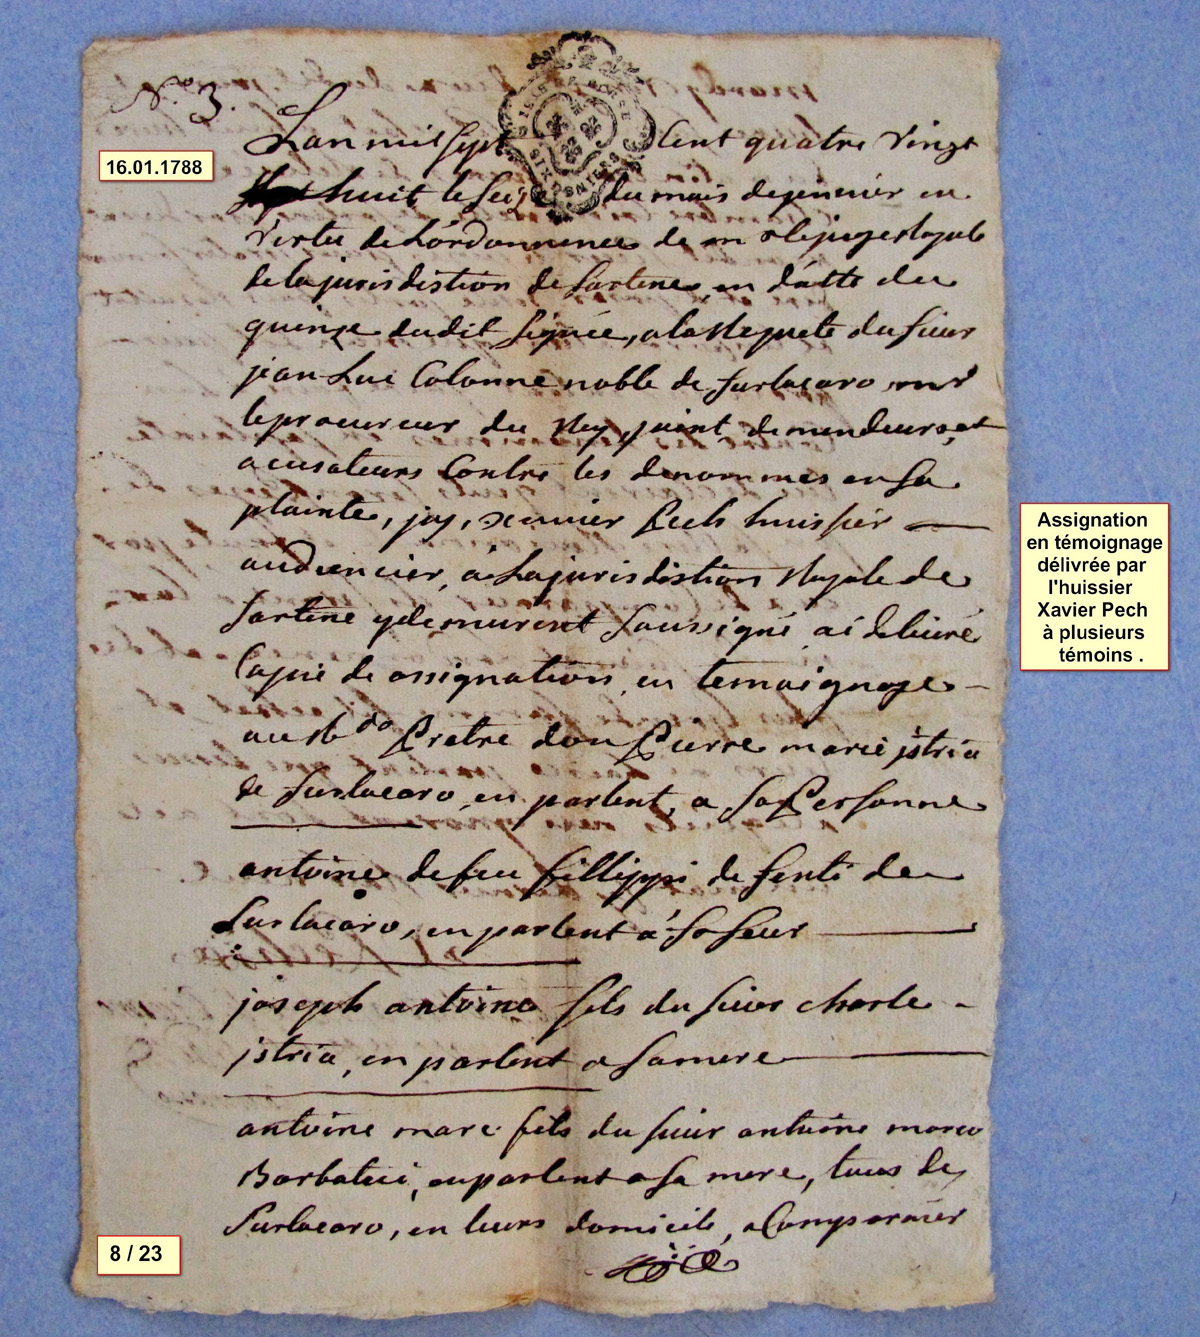 N.o 3.
16.01.1788
Lan mil sept Cent quatre vingt
huit le seize du mois de jenvier en
vertu de L'ordonnence de m r le juge Royale
de la jurisdistion de Sartene, en datte du
quinze dudit signée, a la Requete du sieur
jean Luc Colonne noble de surlacaro, mr
le procureur du Roy, joint, demendeurs, et
acusateurs Contre les denommes en sa
plainte, jay, xavier Pech huissier
audiencier, à La jurisdistion Royale de
sartene y demeurent soussigné ai delivré
Copie de assignation, en temoignage
au Rdo Pretre don Pierre marie jstria
de surlacaro, en parlent, a sa Personne
antoine de feu fillippi de santi de
surlacaro, en parlent a sa seur
joseph antoine fils du sieur charle
jstria, en parlent a sa mere
antoine marc fils du sieur antoine marco
Barbatici, en parlent a sa mere, tous de
surlacaro, en leurs domicile, a Comparoier
Assignation
en témoignage
délivrée par
l'huissier
Xavier Pech
à plusieurs
témoins .
8 / 23